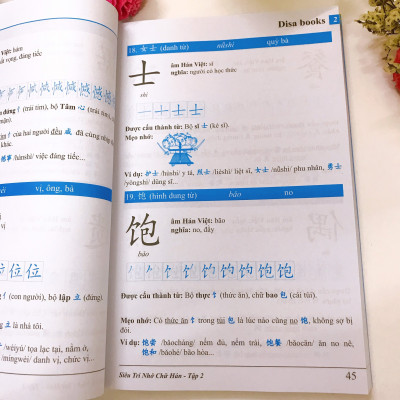 việc hàm
vọng, đáng tiếc
(trái tim), bộ Tâm 心 (trái tim, c
của hai người đều 感 đã cùng nhau
khác.
/hànshì/ việc đáng tiếc...
vị, ông, bà
位 位 位
(con người), bộ lập 立 (đứng).
là nhà tôi.
/wèiyú/ tọa lạc tại, nằm ở,
/míngwèi/ danh vị, chức vị...
Disa books 2
18. 女士 (danh từ) nǚshì quý bà
士
shì
âm Hán Việt: sĩ
nghĩa: người có học thức
士 士 士
Được cấu thành từ: Bộ sĩ 士 (kẻ sĩ).
Mẹo nhớ:
Ví dụ: 护士 /hùshi/ y tá, 烈士 /lièshì/ liệt sĩ, 女士 /nǚshì/ phu nhân, 勇士
/yǒngshì/ dũng sĩ...
19. 饱 (hình dung từ) bǎo no
饱
bǎo
âm Hán Việt: bão
nghĩa: no, đầy
饱 饱
Được cấu thành từ: Bộ thực 饣 (thức ăn), chữ bao 包 (cái túi).
Mẹo nhớ: Có thức ăn 饣 trong túi 包 là lúc nào cũng no 饱, không sợ bị
đói.
Ví dụ: 饱尝 /bǎocháng/ nếm đủ, nếm trải, 饱餐 /bǎocān/ ăn no nê,
饱和 /bǎohé/ bão hòa...
Siêu Trí Nhớ Chữ Hán - Tập 2
45